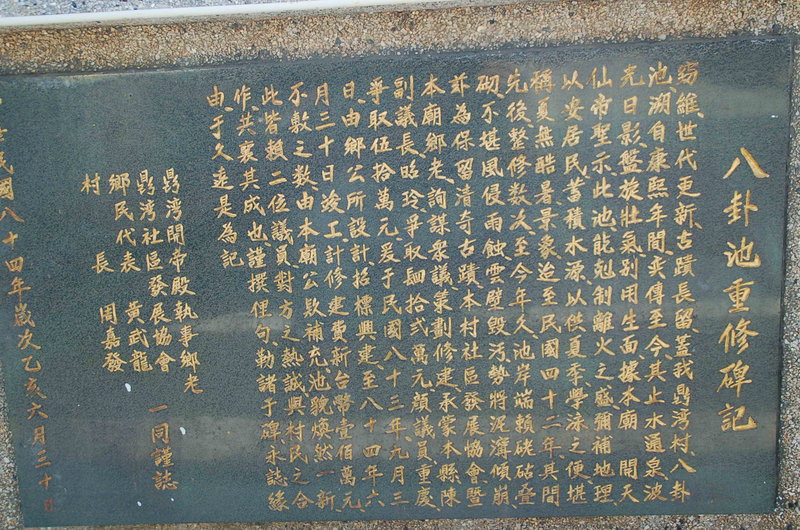 八卦池重修碑記
竊維世代更新古蹟長留蓋我鼎灣村八卦
池湖自康熙年間奕傳至今其止水通泉波
光日影盤旋壯氣別用生面據本廟 開天
仙帝聖示此池能剋制離火之盛彌補地理
以安居民蓄積水源以供夏季學泳之便堪
稱夏無酷暑景象迨至民國四十二年其間
先後整修數次至今年久池岸端賴硓砧疊
砌不堪風侵雨蝕雲壁毀污勢將泥濘傾崩
玆為保留清奇古蹟本村社區發展協會暨
本廟鄉老詢謀眾議策劃修建承蒙本縣陳
副議長昭玲爭取肆拾弍萬元顏議員重慶
爭取伍拾萬元爰于民國八十三年九月三
日由鄉公所設計招標興建至八十四年六
月三十日竣工計修建費新台幣壹佰萬元
不敷之數由本廟公款補充池貌煥然一新
此皆賴二位議員對方之熱誠與村民之合
作共襄其成也謹撰俚句勒諸于碑永誌緣
由于久遠是為記
鼎灣開帝殿執事鄉老
鼎灣社區發展協會
鄉民代表 黃武龍
村長 周嘉發
一同謹誌
民國八十四年歲次乙亥六月三十日